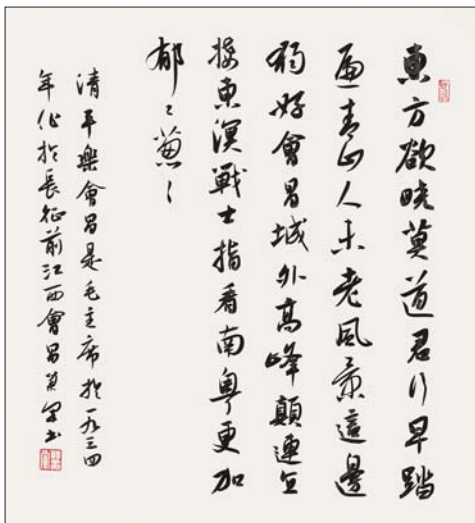 東方欲曉莫道君行早踏
遍青山人未老風景這邊
獨好會昌城外高峰顛連直
接東溟戰士指看南粵更加
郁々葱々
清平樂會昌是毛主席於一九三四
年作於長征前江西會昌書